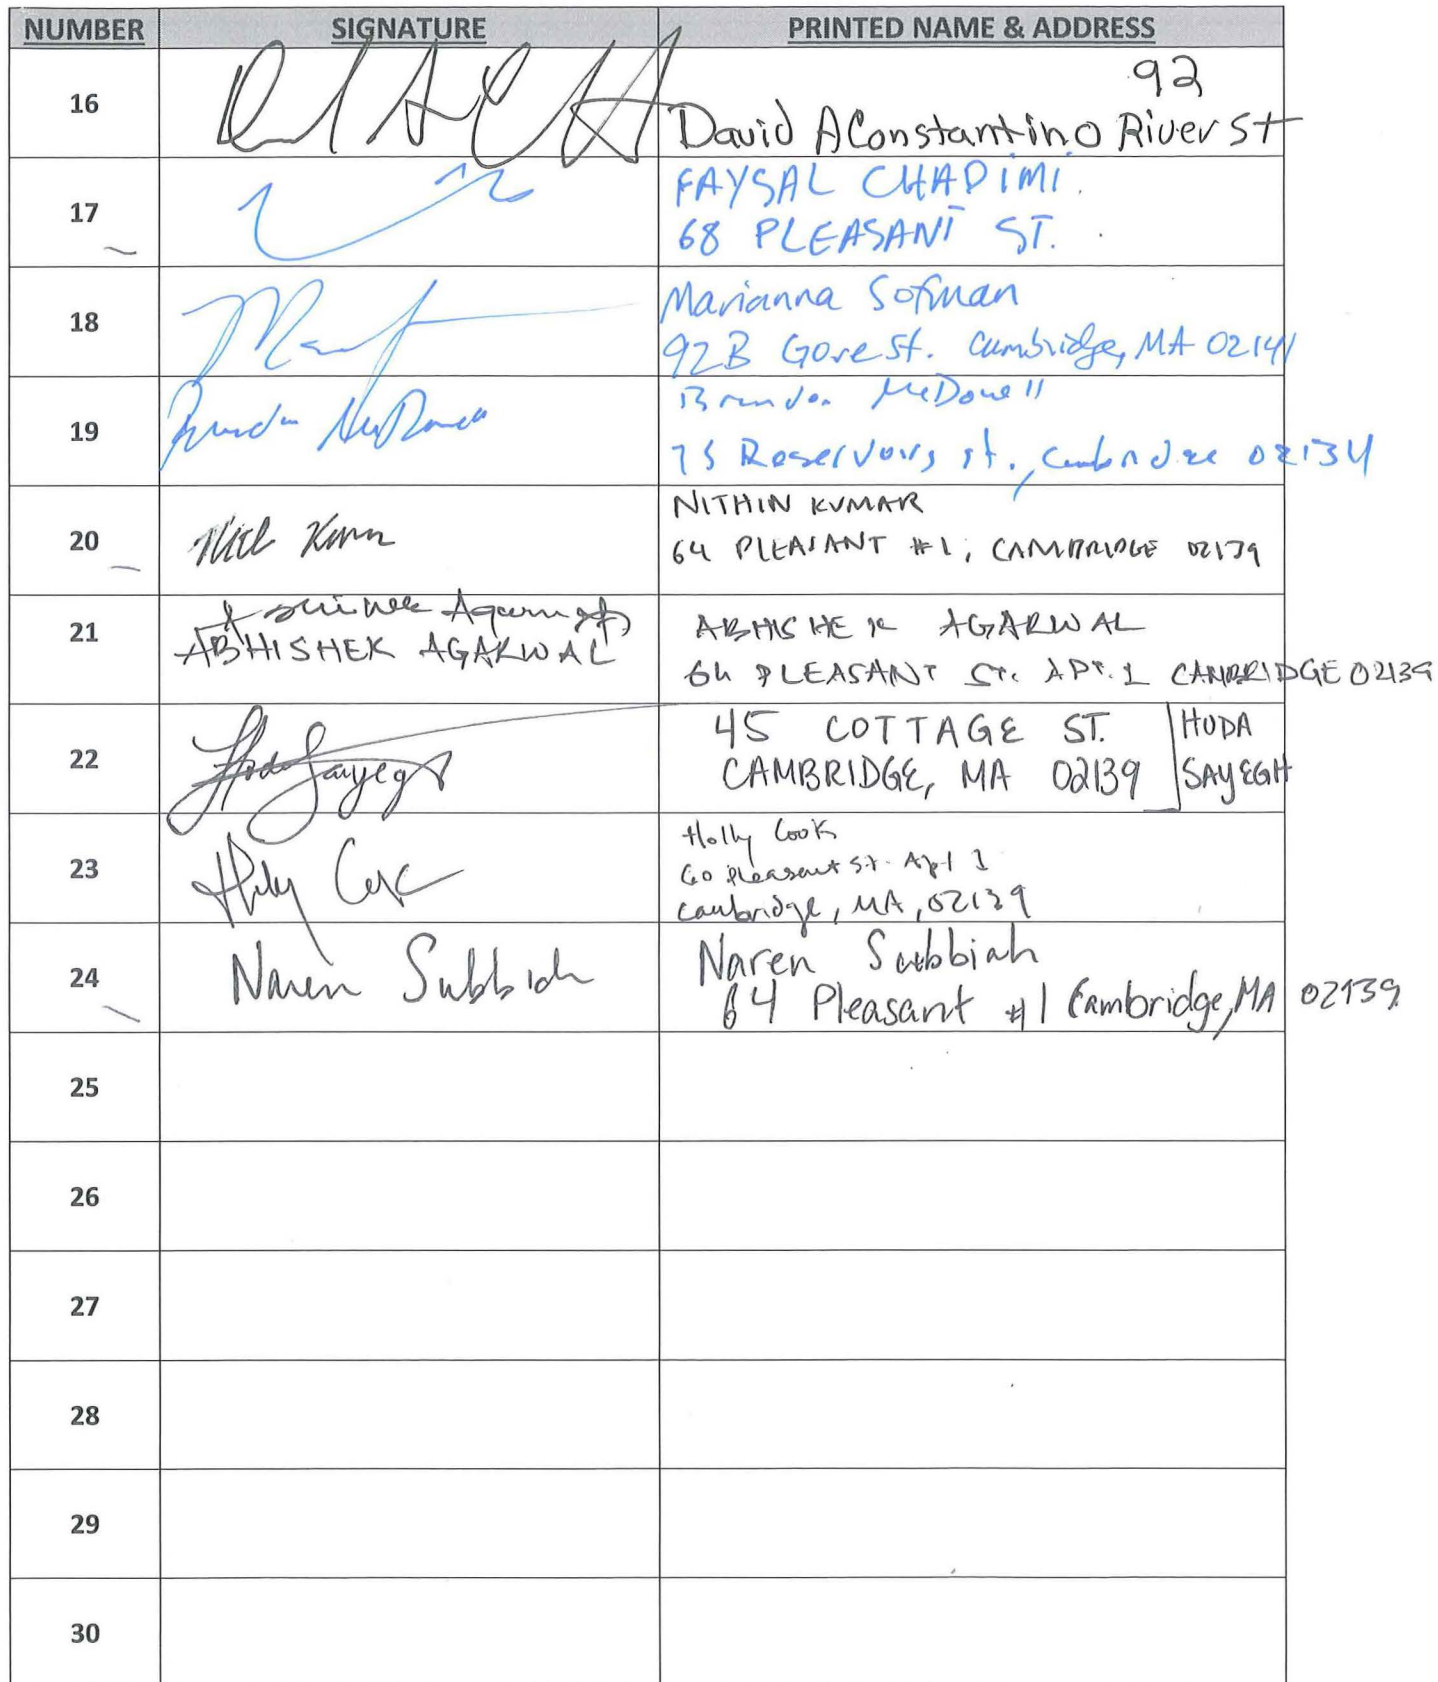 NUMBER SIGNATURE PRINTED NAME & ADDRESS
16 92
David A Constantino River St
17 FAYSAL CHADIMI.
68 PLEASANT ST.
18 Marianna Sofman
92B Gore St. Cambridge, MA 02141
19 Brandon McDowell
75 Reservoirs st., Cambridge 02134
20 NITHIN KUMAR
64 PLEASANT #1, CAMBRIDGE 02139
21 ABHISHEK AGARWAL ABHISHEK AGARWAL
64 PLEASANT ST. APT. 1 CAMBRIDGE 02139
22 Huda Sayegh 45 COTTAGE ST. HUDA
CAMBRIDGE, MA 02139 SAYEGH
23 Holly Cook Holly Cook
60 Pleasant St. Apt 1
Cambridge, MA, 02139
24 Naren Subbiah Naren Subbiah
64 Pleasant #1 Cambridge, MA 02139
25
26
27
28
29
30